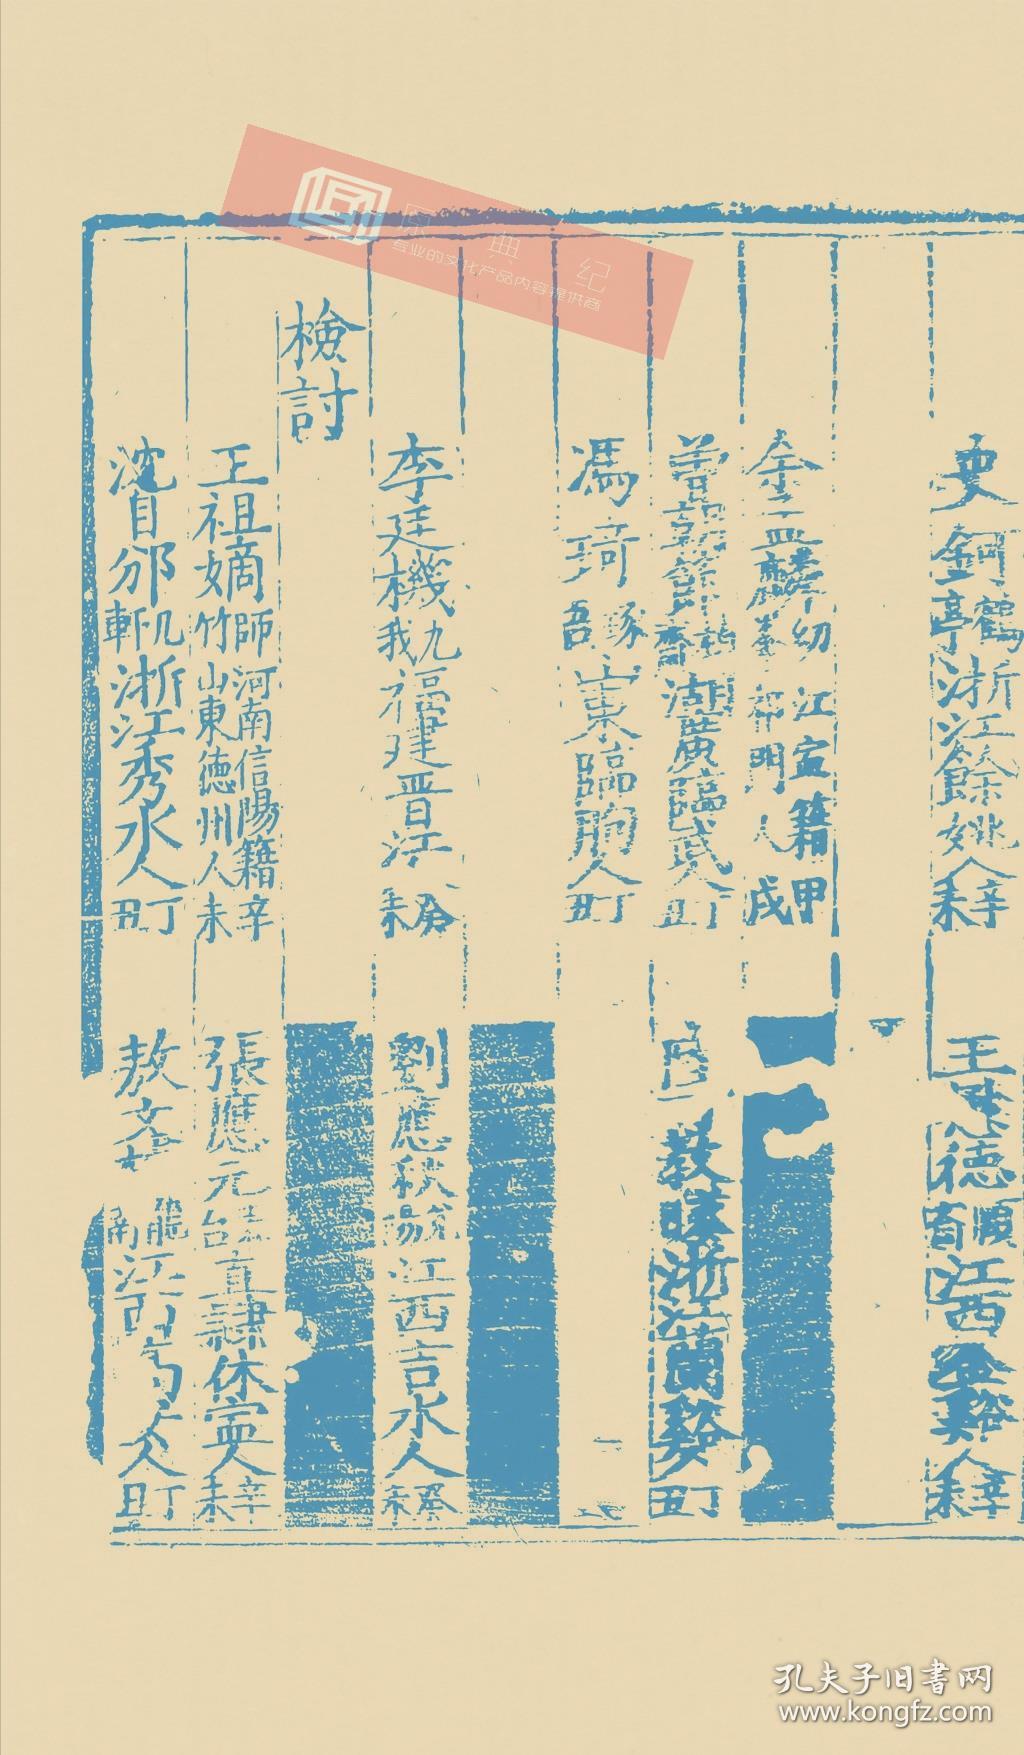 史鈳鶴亭浙江餘姚人辛未
王德順江西金谿人辛未
余孟麟幼峯江寍籍祁門人甲戌
曾朝節湖廣臨武人丁丑
陸可教浙江蘭谿丁丑
馮琦琢吾山東臨朐人丁丑
李廷機九我福建晋江癸未
劉應秋兌陽江西吉水人癸未
檢討
王祖嫡師竹河南信陽籍山東德州人辛未
張應元台直隸休寍人辛未
沈自邠几軒浙江秀水人丁丑
敖文龍江高人丁丑
原典纪
专业的文化产品内容提供商
孔夫子旧书网
www.kongfz.com